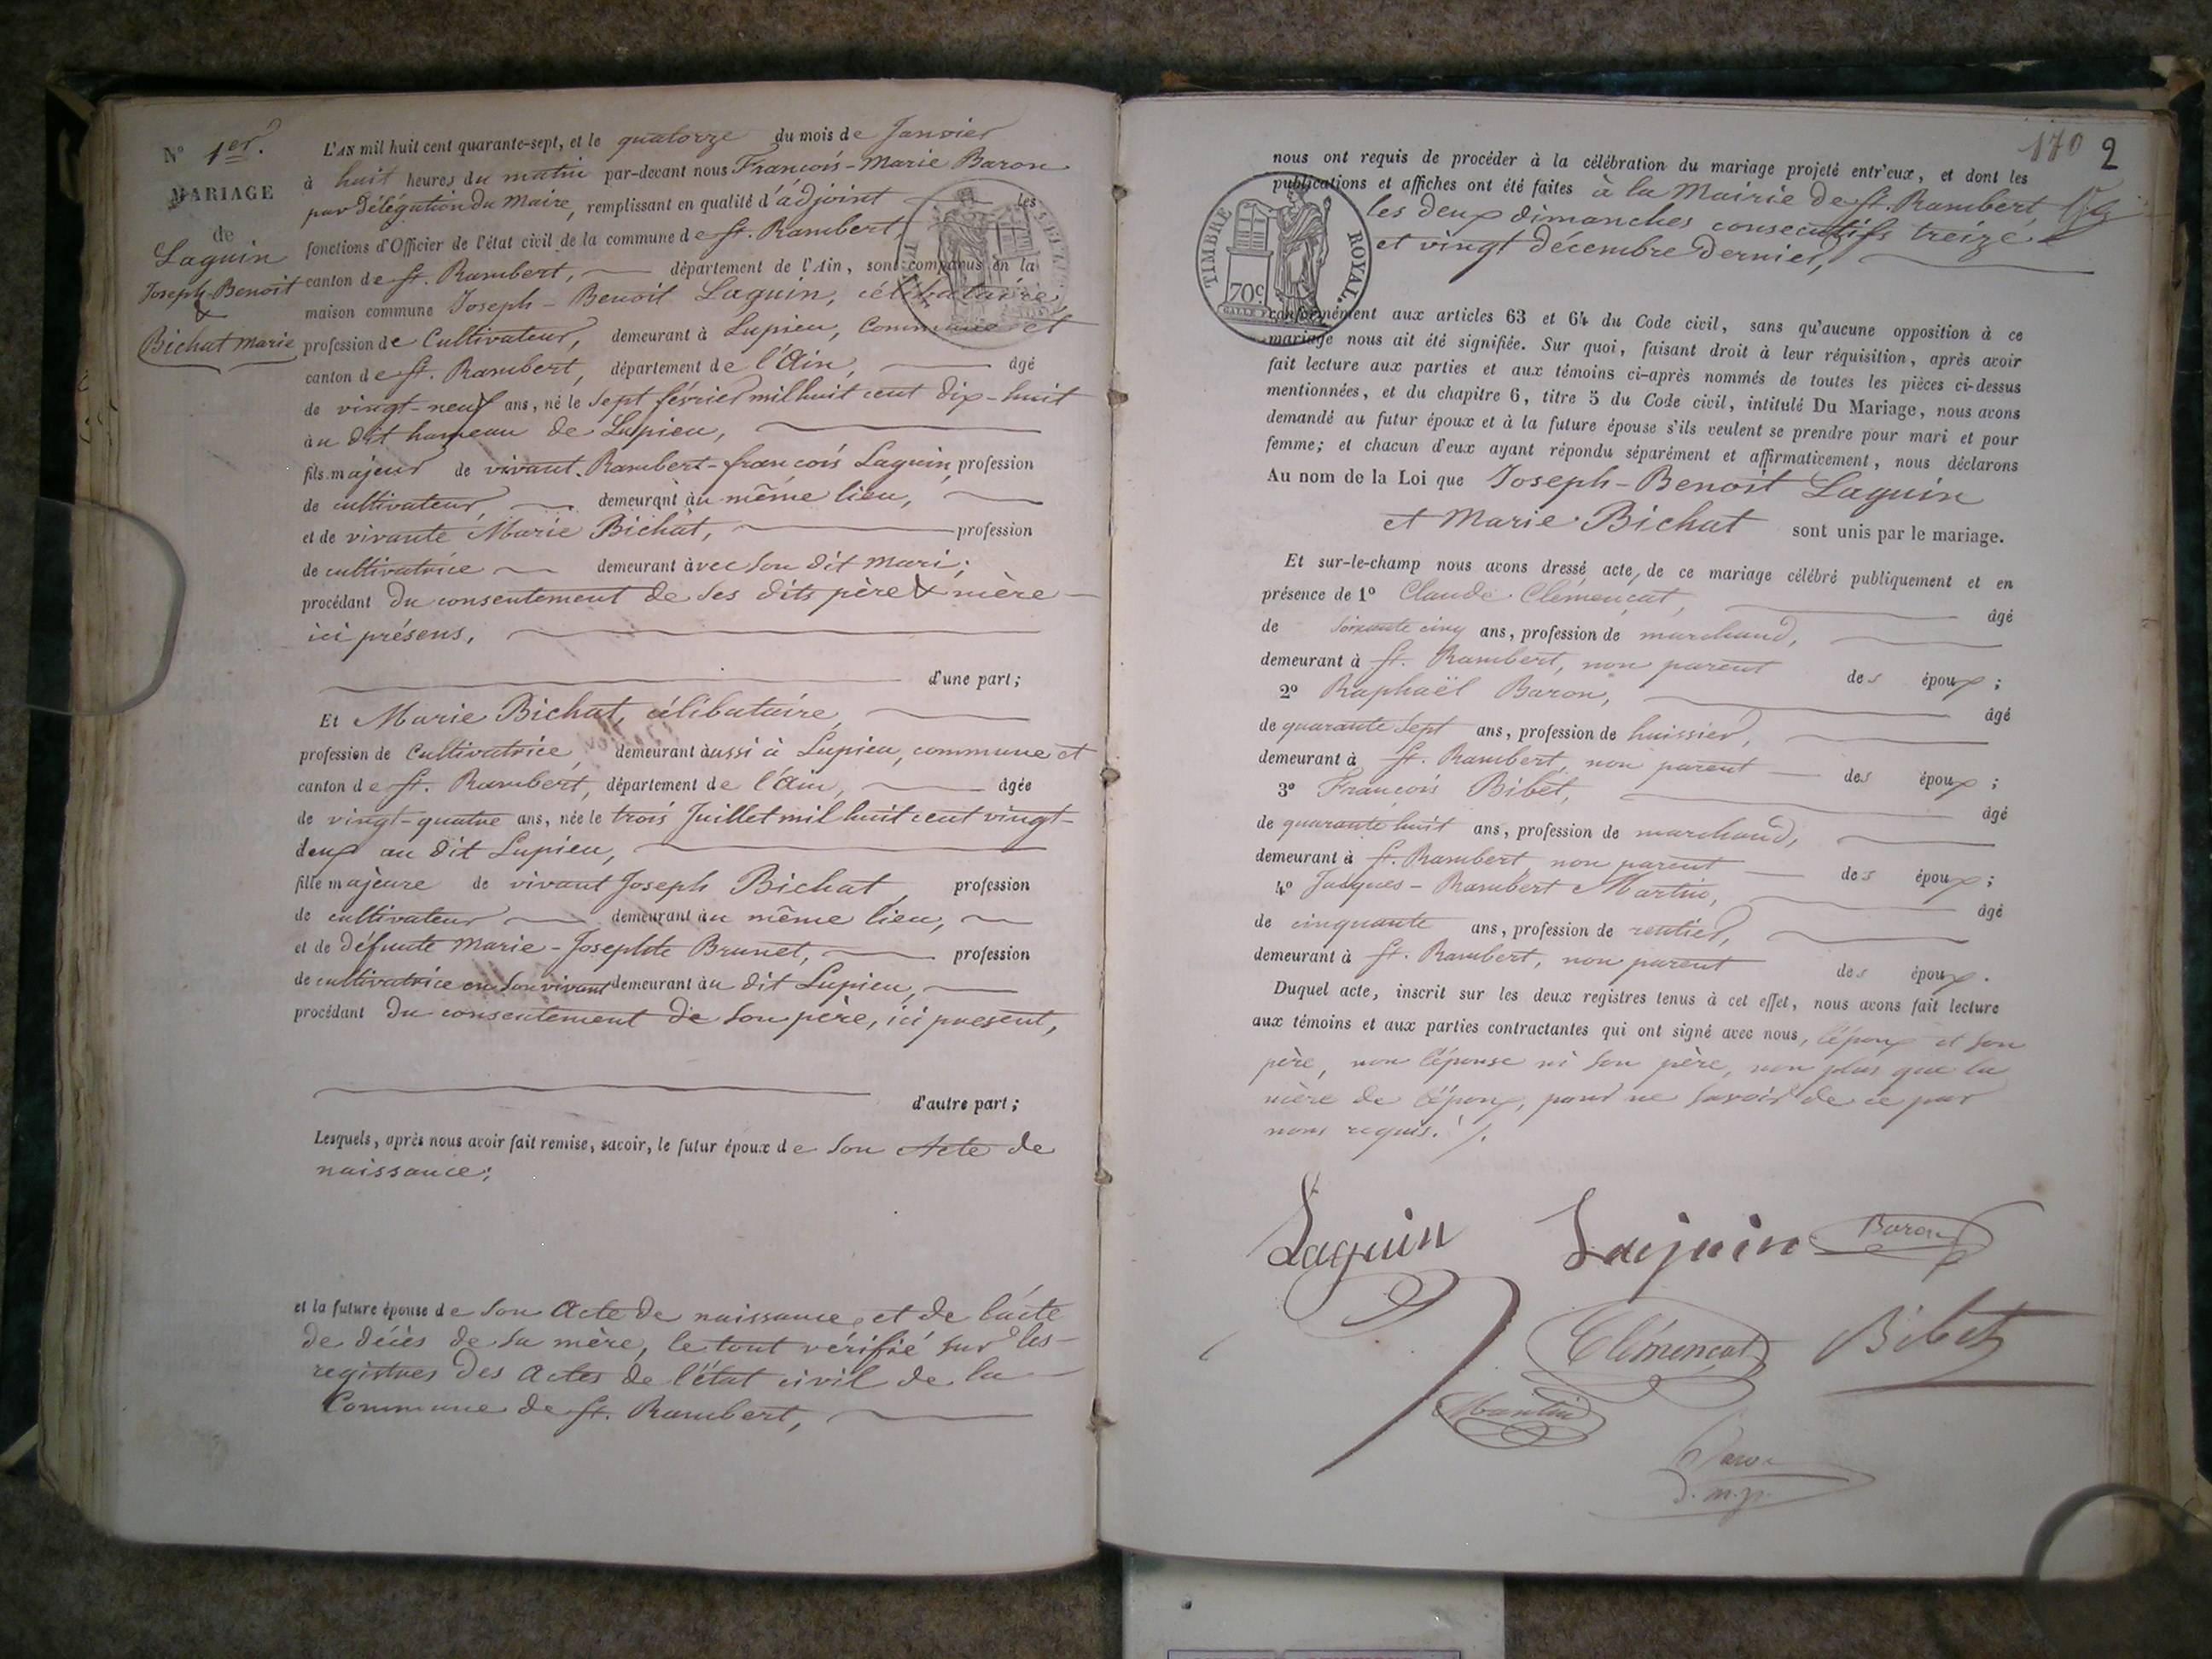 N° 1er.
MARIAGE
de
Laguin
Joseph-Benoit
&
Bichat Marie
L'AN mil huit cent quarante-sept, et le quatorze du mois de Janvier
à huit heures du matin par-devant nous François-Marie Baron
par Délégation du Maire, remplissant en qualité d'adjoint les
fonctions d'Officier de l'état civil de la commune de St. Rambert,
canton de St. Rambert, département de l'Ain, sont comparus en la
maison commune Joseph-Benoit Laguin, célibataire,
profession de Cultivateur, demeurant à Lupieu, Commune et
canton de St. Rambert, département de l'Ain, âgé
de vingt-neuf ans, né le sept février mil huit cent dix-huit
au dit hameau de Lupieu,
fils majeur de vivant Rambert-françois Laguin, profession
de cultivateur, demeurant au même lieu,
et de vivante Marie Bichat, profession
de cultivatrice demeurant avec son dit mari;
procédant du consentement de ses dits père & mère
ici présens,
d'une part;
Et Marie Bichat, célibataire,
profession de Cultivatrice, demeurant aussi à Lupieu, commune et
canton de St. Rambert, département de l'Ain, âgée
de vingt-quatre ans, née le trois Juillet mil huit cent vingt-
deux au dit Lupieu,
fille majeure de vivant Joseph Bichat, profession
de cultivateur demeurant au même lieu,
et de défunte Marie-Josephte Brunet, profession
de cultivatrice en son vivant demeurant au dit Lupieu,
procédant du consentement de son père, ici présent,
d'autre part;
Lesquels, après nous avoir fait remise, savoir, le futur époux de son Acte de
naissance;
et la future épouse de son Acte de naissance, et de l'acte
de décès de sa mère, le tout vérifié sur les
registres des Actes de l'état civil de la
Commune de St. Rambert,
170 2
nous ont requis de procéder à la célébration du mariage projeté entr'eux, et dont les
publications et affiches ont été faites à la Mairie de St. Rambert,
les deux dimanches consecutifs treize
et vingt décembre dernier,
TIMBRE ROYAL.
70c
conformément aux articles 63 et 64 du Code civil, sans qu'aucune opposition à ce
mariage nous ait été signifiée. Sur quoi, faisant droit à leur réquisition, après avoir
fait lecture aux parties et aux témoins ci-après nommés de toutes les pièces ci-dessus
mentionnées, et du chapitre 6, titre 5 du Code civil, intitulé Du Mariage, nous avons
demandé au futur époux et à la future épouse s'ils veulent se prendre pour mari et pour
femme; et chacun d'eux ayant répondu séparément et affirmativement, nous déclarons
Au nom de la Loi que Joseph-Benoit Laguin
et Marie Bichat sont unis par le mariage.
Et sur-le-champ nous avons dressé acte, de ce mariage célébré publiquement et en
présence de 1° Claude Clémençat, âgé
de soixante cinq ans, profession de marchand,
demeurant à St. Rambert, non parent des époux;
2° Raphaël Baron, âgé
de quarante sept ans, profession de huissier,
demeurant à St. Rambert, non parent des époux;
3° François Bibet, âgé
de quarante huit ans, profession de marchand,
demeurant à St. Rambert non parent des époux;
4° Jacques-Rambert Martin, âgé
de cinquante ans, profession de rentier,
demeurant à St. Rambert, non parent des époux.
Duquel acte, inscrit sur les deux registres tenus à cet effet, nous avons fait lecture
aux témoins et aux parties contractantes qui ont signé avec nous, l'époux et son
père, non l'épouse ni son père, non plus que la
mère de l'époux, pour ne savoir de ce par
nous requis. /.
Laguin Laguin Baron
Clémençat Bibet
Martin
Baron
d. m. p.